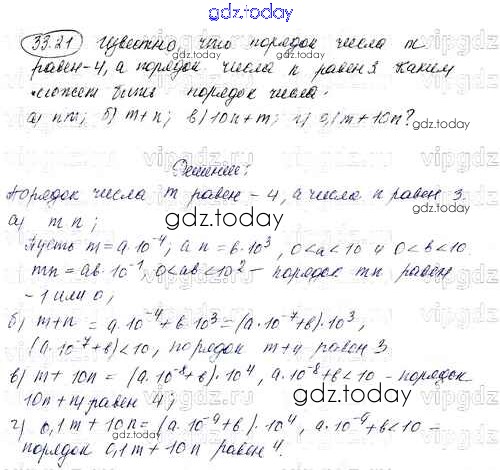 gdz.today
33.21 Известно, что порядок числа m
равен -4, а порядок числа n равен 3. Каким
может быть порядок числа:
а) nm; б) m+n; в) 10n+m; г) 0,1m+10n?
gdz.today
Решение:
Порядок числа m равен -4, а числа n равен 3.
gdz.today
а) mn;
Пусть m=a·10⁻⁴; а n=в·10³, 0<a<10 и 0<в<10
mn=aв·10⁻¹, 0<aв<10² – порядок mn равен
-1 или 0;
б) m+n = a·10⁻⁴+в·10³=(a·10⁻⁷+в)·10³,
(a·10⁻⁷+в)<10, порядок m+n равен 3
в) m+10n=(a·10⁻⁸+в)·10⁴, a·10⁻⁸+в<10 – порядок
10n+m равен 4;
г) 0,1m+10n=(a·10⁻⁹+в)·10⁴, a·10⁻⁹+в<10 –
порядок 0,1m+10n равен 4.
gdz.today